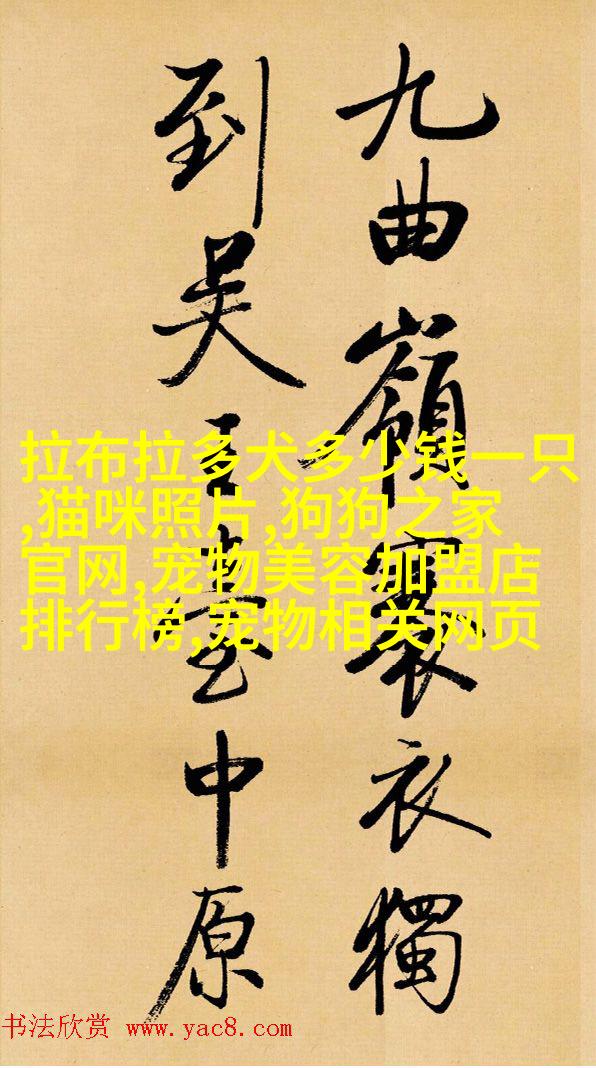 九曲嶺褰衣獨
到吳臺中原
拉布拉多犬多少钱一只
,猫咪照片,狗狗之家
官网,宠物美容加盟店
排行榜,宠物相关网页
书法欣赏 www.yac8.com